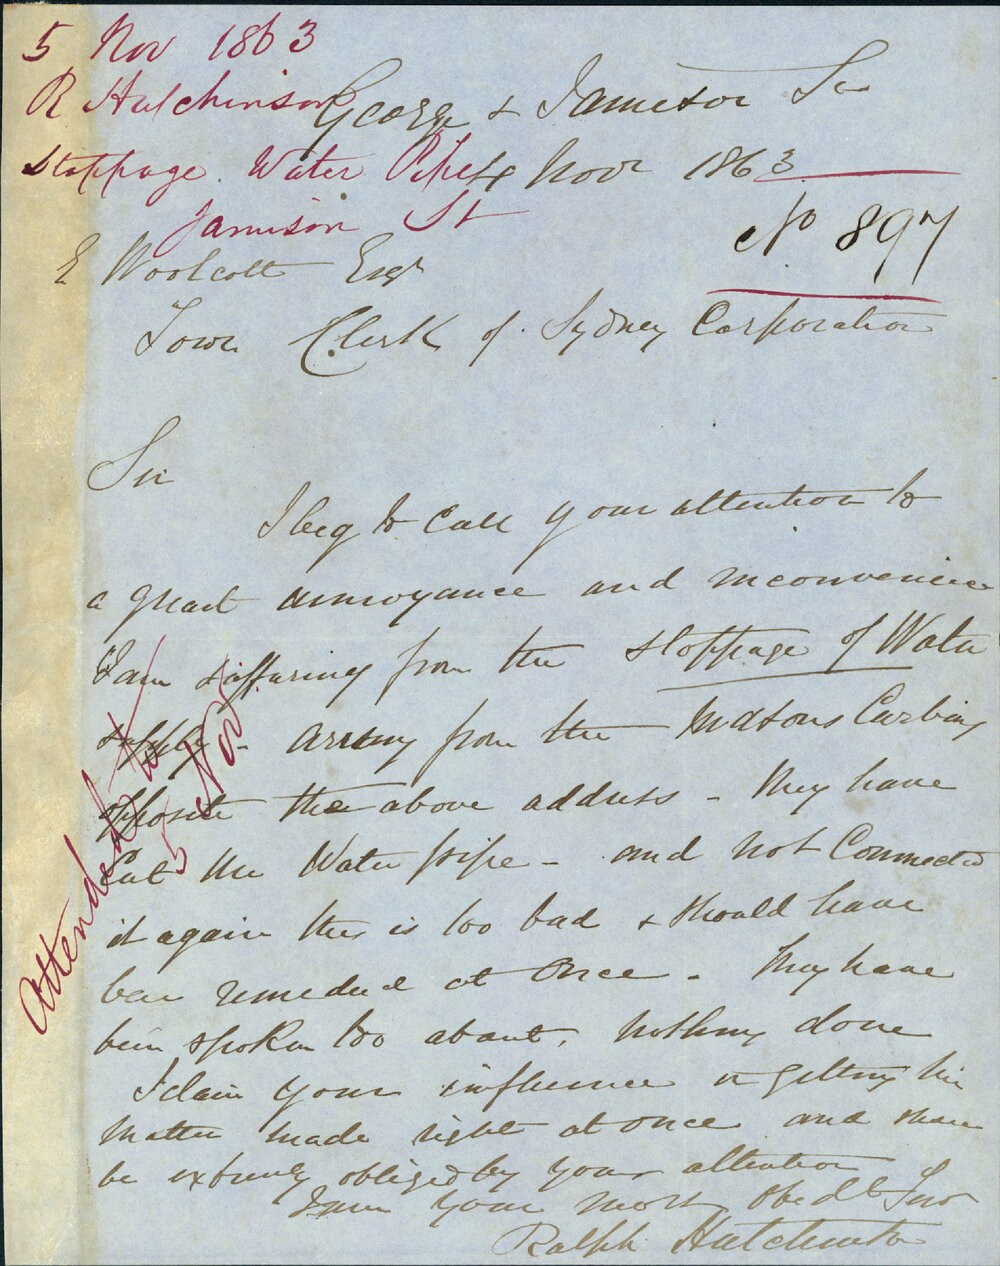 5 Nov 1863
R Hutchinson
Stoppage Water Pipe
Jamison St
George & Jamison St
4 Novr 1863
No 897
E Woolcott Esqr
Town Clerk of Sydney Corporation
Sir
I beg to call your attention to
a great annoyance and inconvenience
I am suffering from the stoppage of Water
supply - arising from the Masons Carbing
opposite the above address - They have
Cut the Water pipe - and not Connected
it again this is too bad & should have
been remedied at Once - They have
been spoken too about, nothing done
I claim your influence in getting this
matter made right at once and
be extremely obliged by your attention
I am your most Obedt
Ralph Hutchinson
Attended to
5 Nov